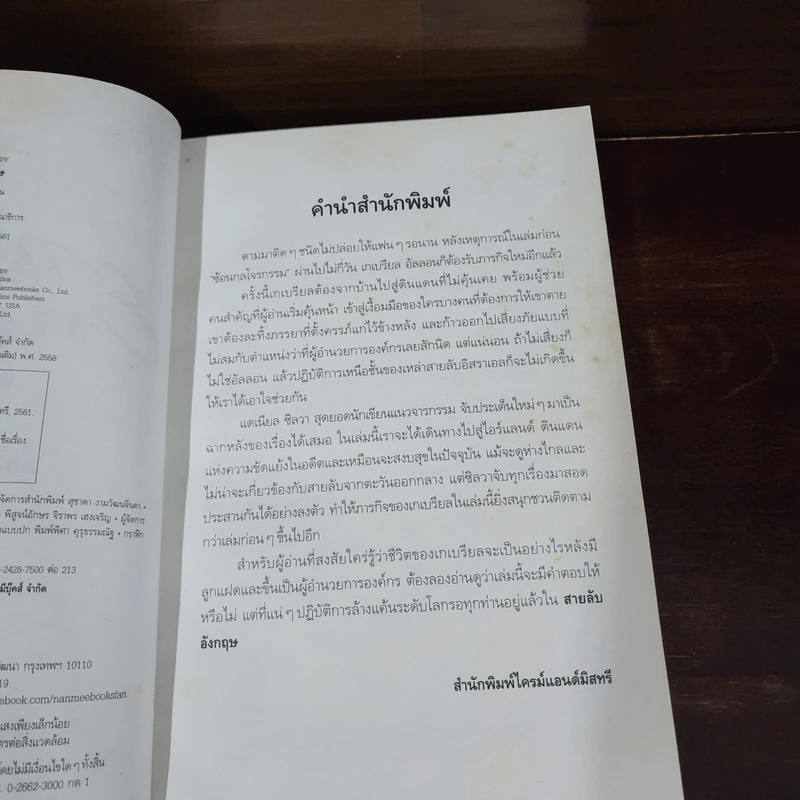 นาธิการ
561
nanmeebooks Co., Ltd.
Publishers
USA
Ltd.
บุ๊คส์ จำกัด
เติม) พ.ศ. 2558
ทรี, 2561.
ชื่อเรื่อง.
จัดการสำนักพิมพ์ สุชาดา งามวัฒนจินดา •
พิสูจน์อักษร จิราพร เฮงเจริญ • ผู้จัดการ
แบบปก พิมพ์พิศา คุรุธรรมณัฐ • กราฟิก
-2428-7500 ต่อ 213
มีบุ๊คส์ จำกัด
วัฒนา กรุงเทพฯ 10110
19
ebook.com/nanmeebooksfan
แสงเพียงเล็กน้อย
ตรต่อสิ่งแวดล้อม
โดยไม่มีเงื่อนไขใดๆ ทั้งสิ้น
0-2662-3000 กด 1
คำนำสำนักพิมพ์
ตามมาติดๆ ชนิดไม่ปล่อยให้แฟนๆ รอนาน หลังเหตุการณ์ในเล่มก่อน
“ซ้อนกลโจรกรรม” ผ่านไปไม่กี่วัน เกเบรียล อัลลอนก็ต้องรับภารกิจใหม่อีกแล้ว
ครั้งนี้เกเบรียลต้องจากบ้านไปสู่ดินแดนที่ไม่คุ้นเคย พร้อมผู้ช่วย
คนสำคัญที่ผู้อ่านเริ่มคุ้นหน้า เข้าสู่เงื้อมมือของใครบางคนที่ต้องการให้เขาตาย
เขาต้องละทิ้งภรรยาที่ตั้งครรภ์แก่ไว้ข้างหลัง และก้าวออกไปเสี่ยงภัยแบบที่
ไม่สมกับตำแหน่งว่าที่ผู้อำนวยการองค์กรเลยสักนิด แต่แน่นอน ถ้าไม่เสี่ยงก็
ไม่ใช่อัลลอน แล้วปฏิบัติการเหนือชั้นของเหล่าสายลับอิสราเอลก็จะไม่เกิดขึ้น
ให้เราได้เอาใจช่วยกัน
แดเนียล ซิลวา สุดยอดนักเขียนแนวจารกรรม จับประเด็นใหม่ๆ มาเป็น
ฉากหลังของเรื่องได้เสมอ ในเล่มนี้เราจะได้เดินทางไปสู่ไอร์แลนด์ ดินแดน
แห่งความขัดแย้งในอดีตและเหมือนจะสงบสุขในปัจจุบัน แม้จะดูห่างไกลและ
ไม่น่าจะเกี่ยวข้องกับสายลับจากตะวันออกกลาง แต่ซิลวาจับทุกเรื่องมาสอด
ประสานกันได้อย่างลงตัว ทำให้ภารกิจของเกเบรียลในเล่มนี้ยิ่งสนุกชวนติดตาม
กว่าเล่มก่อนๆ ขึ้นไปอีก
สำหรับผู้อ่านที่สงสัยใคร่รู้ว่าชีวิตของเกเบรียลจะเป็นอย่างไรหลังมี
ลูกแฝดและขึ้นเป็นผู้อำนวยการองค์กร ต้องลองอ่านดูว่าเล่มนี้จะมีคำตอบให้
หรือไม่ แต่ที่แน่ๆ ปฏิบัติการล้างแค้นระดับโลกรอทุกท่านอยู่แล้วใน สายลับ
อังกฤษ
สำนักพิมพ์ไครม์แอนด์มิสทรี